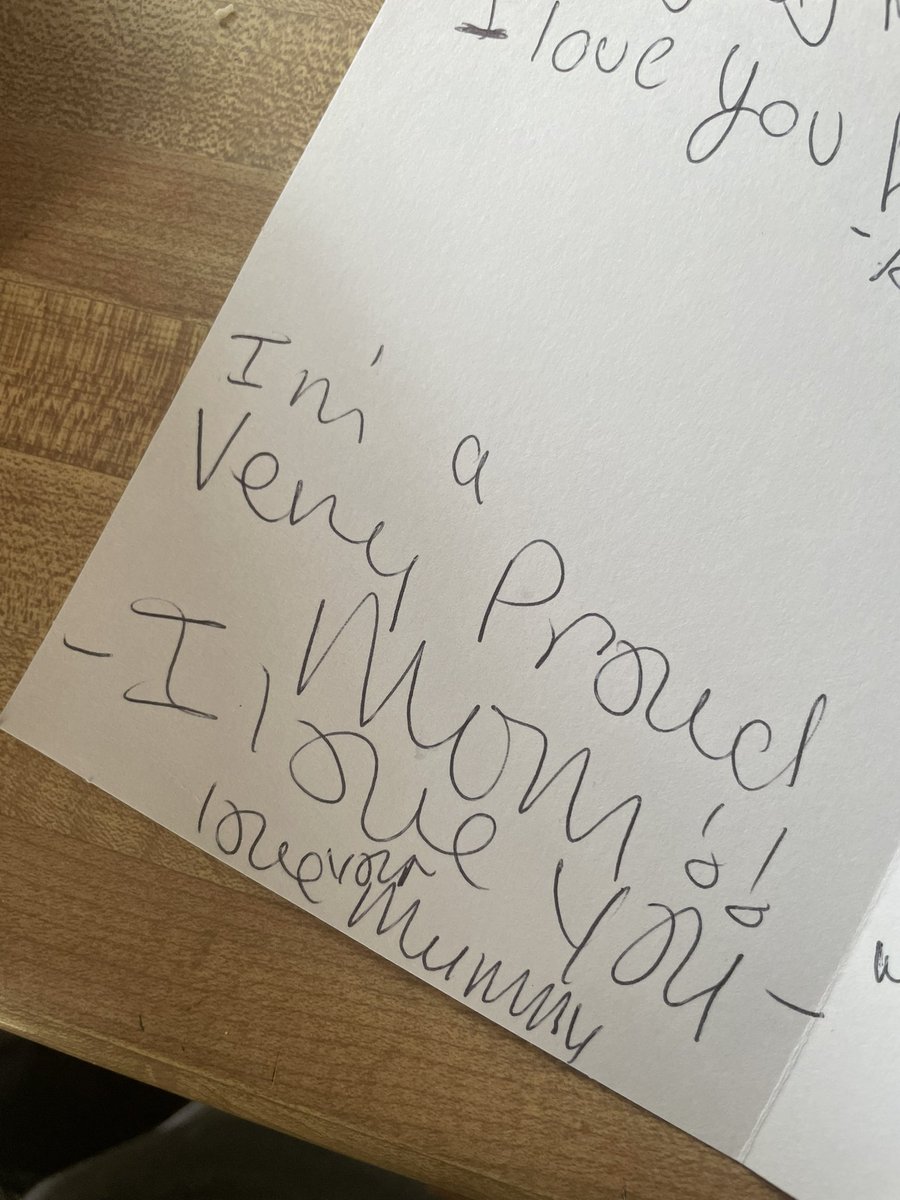 I love you
I'm a
Very Proud
Mom!!
- I love you -
love your
Mummy